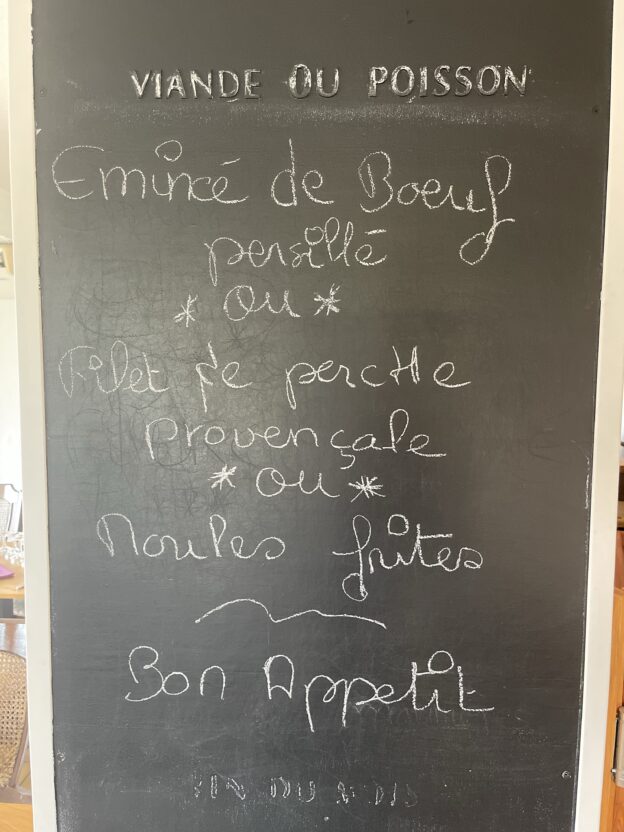 VIANDE OU POISSON
Emincé de Boeuf
persillé
* ou *
Filet de perche
provençale
* ou *
Moules frites
Bon Appetit